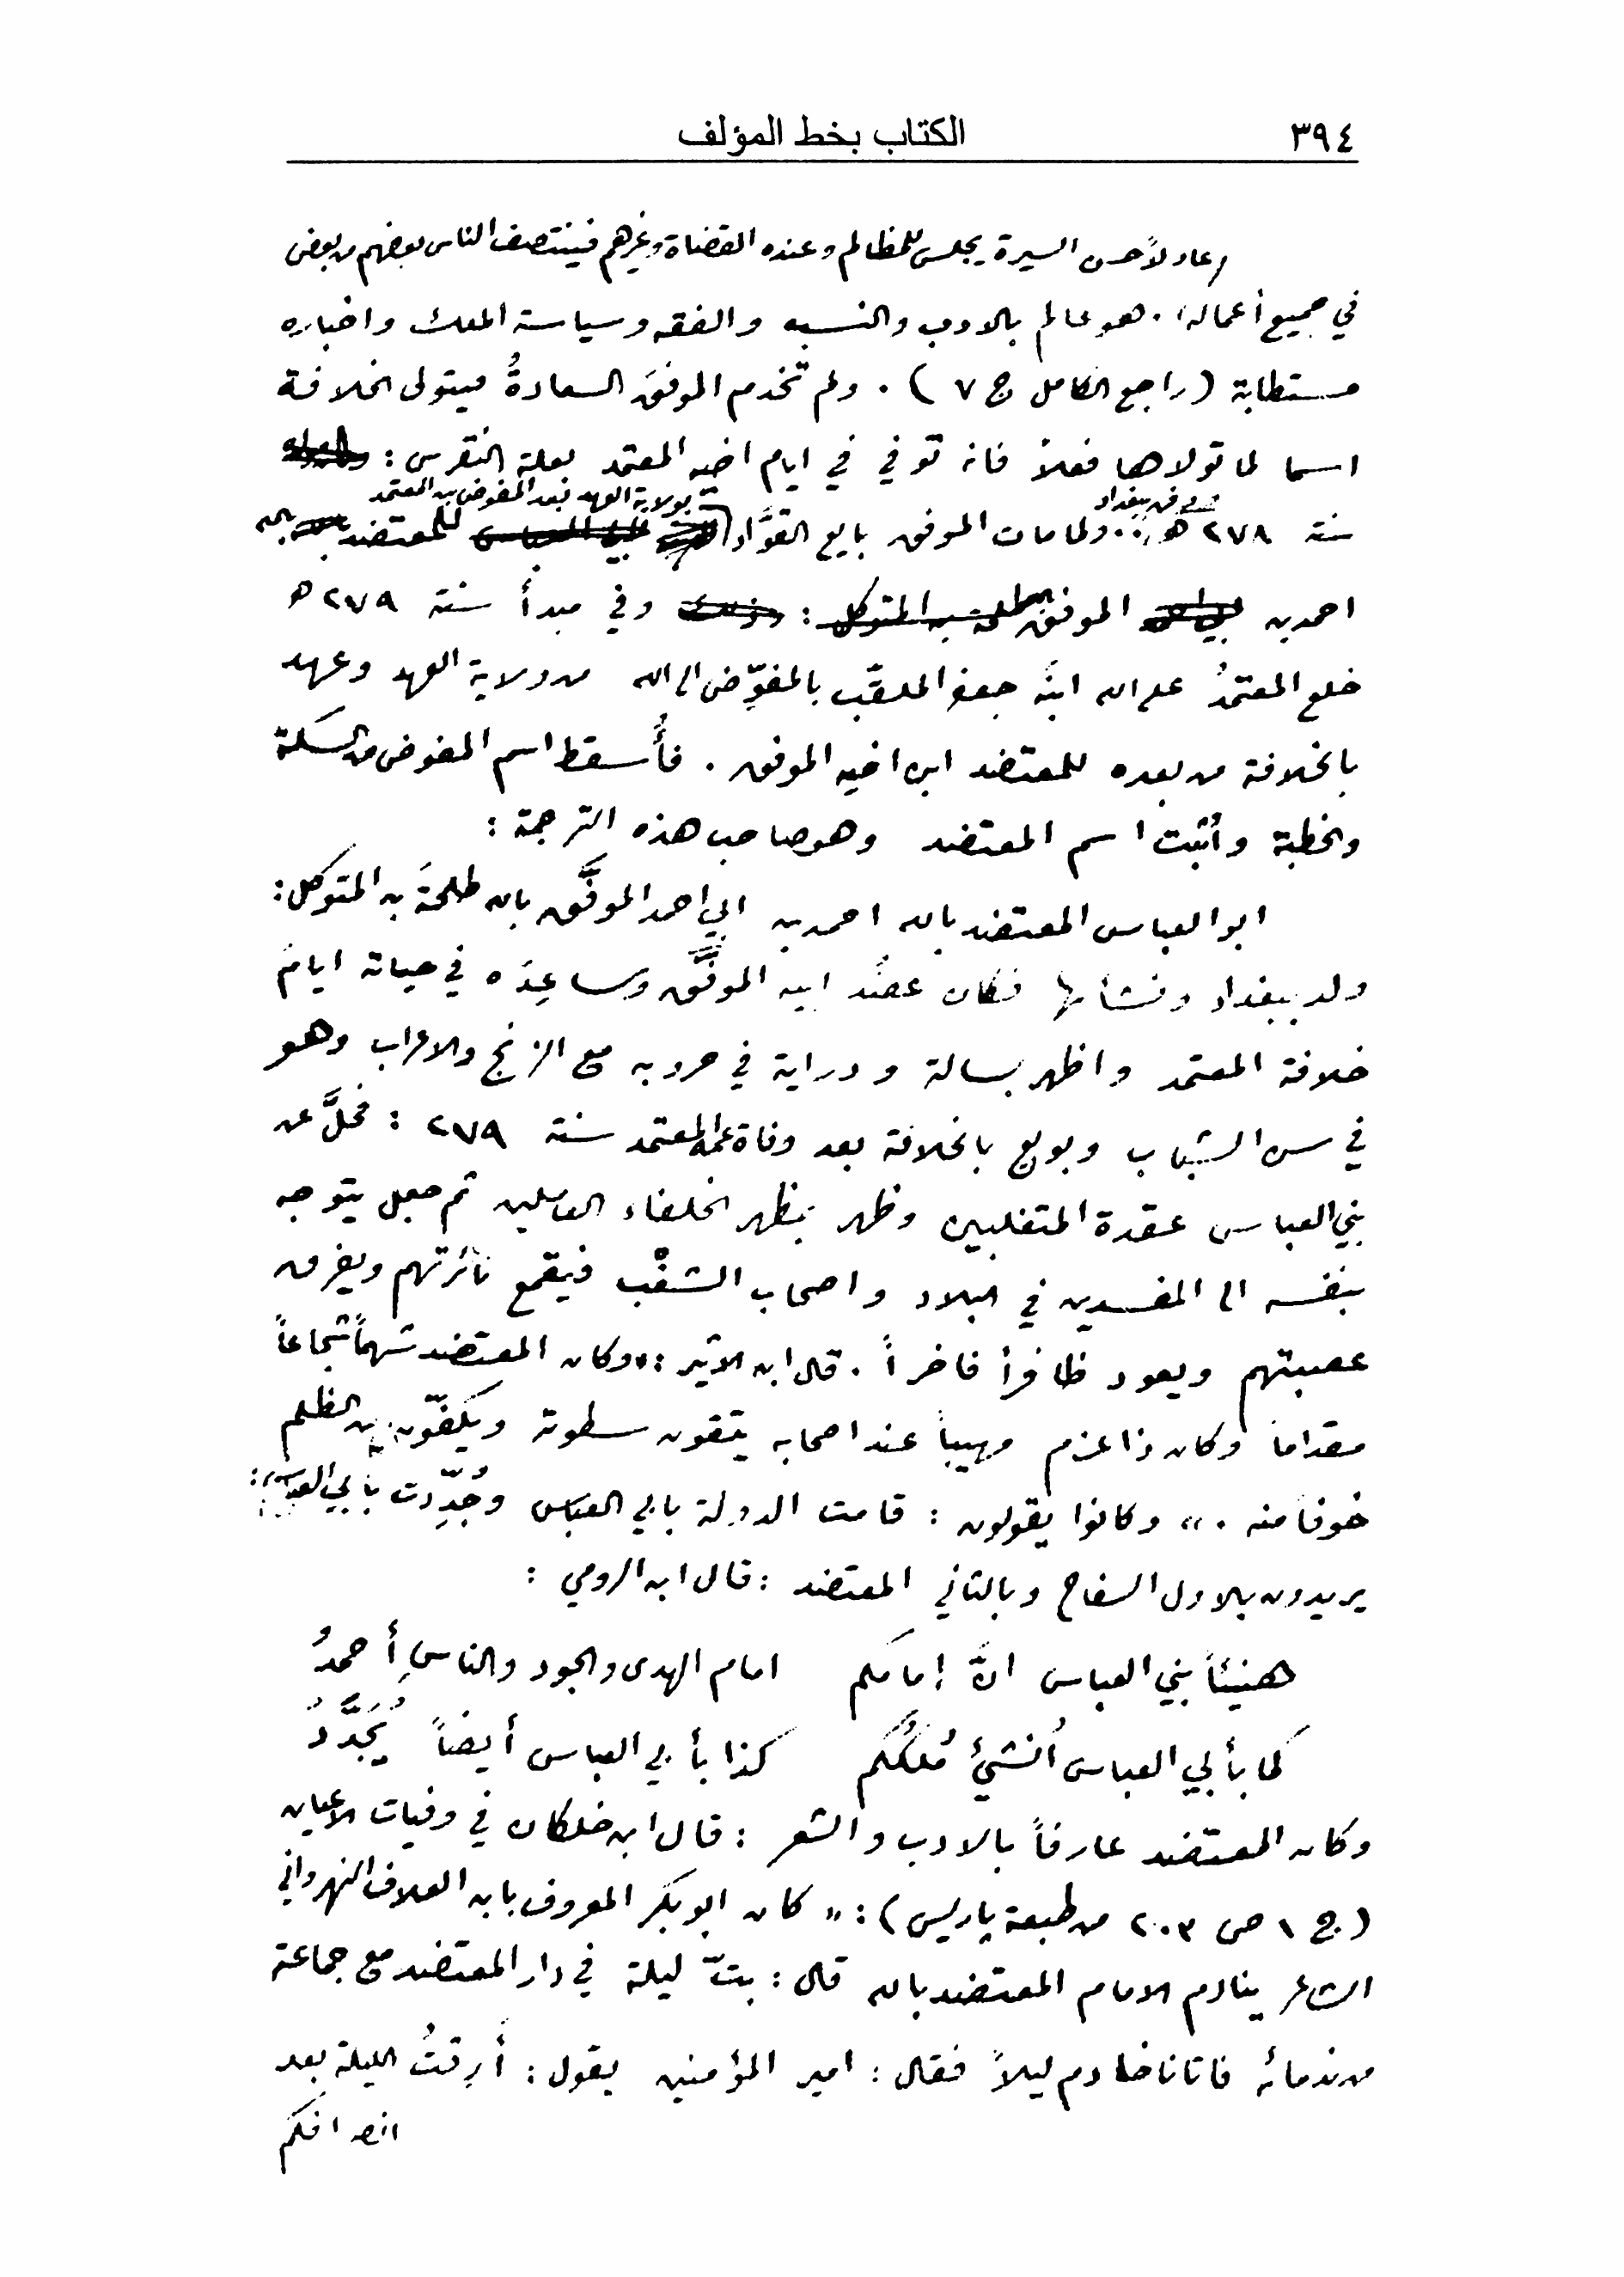 ٣٩٤ الكتاب بخط المؤلف
عادلاً حسن السيرة يجلس للمظالم وعنده القضاة وغيرهم فينتصف الناس بعضهم من بعض
في جميع أعماله. هو عالم بالادب والنسب والفقه وسياسة الملك واخباره
مستطابة (راجع الكامل ج ٧). ولم تخدم الموفقَ السعادةُ فيتولى الخلافة
اسما لما تولاها فعلاً فانه توفي في ايام اخيه المعتمد بعلة النقرس:
بولاية العهد بعد المفوض بن المعتمد
سنة ٢٧٨ هـ .. ولما مات الموفق بايع القوَّاد للمعتضد بالله
احمد بن الموفق طلحة بن المتوكل: وفي مبدأ سنة ٢٧٩ هـ
خلع المعتمدُ على الله ابنَه جعفر الملقّب بالمفوِّض الى الله من ولاية العهد وعهد
بالخلافة من بعده للمعتضد ابن اخيه الموفق. فأُسقط اسم المفوض من السكة
والخطبة وأُثبت اسم المعتضد وهو صاحب هذه الترجمة:
ابو العباس المعتضد بالله احمد بن ابي احمد الموفَّق بالله طلحةَ بن المتوكل:
ولد ببغداد ونشأ بها فكان عضُد ابيه الموفَّق وساعِدَه في حياته ايام
خلافة المعتمد واظهر بسالة ودراية في حروبه مع الزنج والاعراب وهو
في سن الشباب وبويع بالخلافة بعد وفاة عمه المعتمد سنة ٢٧٩: فحلَّ عن
بني العباس عقدة المتغلبين وظهر بمظهر الخلفاء العاملين ثم جعل يتوجه
بنفسه الى المفسدين في البلاد واصحاب الشغْب فيقمع نائرتهم ويفرق
عصبتهم ويعود ظافراً فاخراً. قال ابن الاثير: «وكان المعتضد شهماً شجاعاً
مقداماً وكان ذا عزم مهيباً عند اصحابه يتقون سطوته ويكفّون عن الظلم
خوفاً منه.» وكانوا يقولون: قامت الدولة بابي العباس وجُدِّدت بأبي العباس:
يريدون بالاول السفاح وبالثاني المعتضد: قال ابن الرومي:
هنيئاً بني العباس انَّ إمامَكم امام الهدى والجود والناسِ أحمدُ
كما بأبي العباس اُنشئَ مُلكُكم كذا بأبي العباس أيضاً يُجَدَّدُ
وكان المعتضد عارفاً بالادب والشعر: قال ابن خلكان في وفيات الاعيان
(ج ١ ص ٢٠٣ من طبعة پاريس): «كان ابو بكر المعروف بابن العلاف النهرواني
الشاعر ينادم الامام المعتضد بالله قال: بتّ ليلة في دار المعتضد مع جماعة
من ندمائه فاتانا خادم ليلاً فقال: امير المؤمنين يقول: أَرِقتُ الليلة بعد
انصرافكم